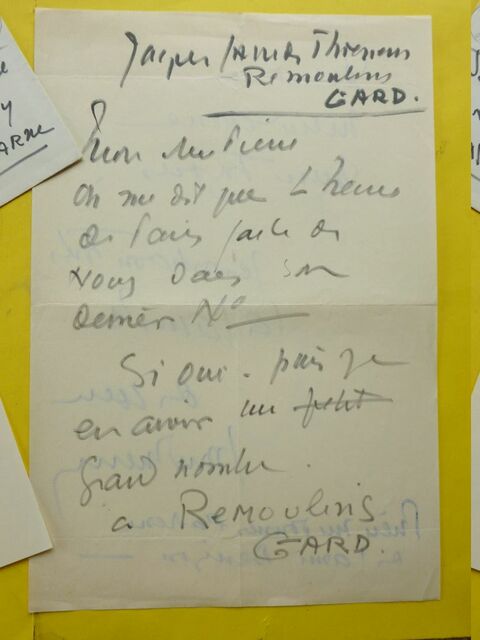 Remoulins
GARD.
Mon Pierre
On me dit que L'heure
de Paris parle de
Vous dans son
dernier N°
Si oui - puis je
en avoir un petit
Grand nombre.
a REMOULINS
GARD.
e
y
ARNE